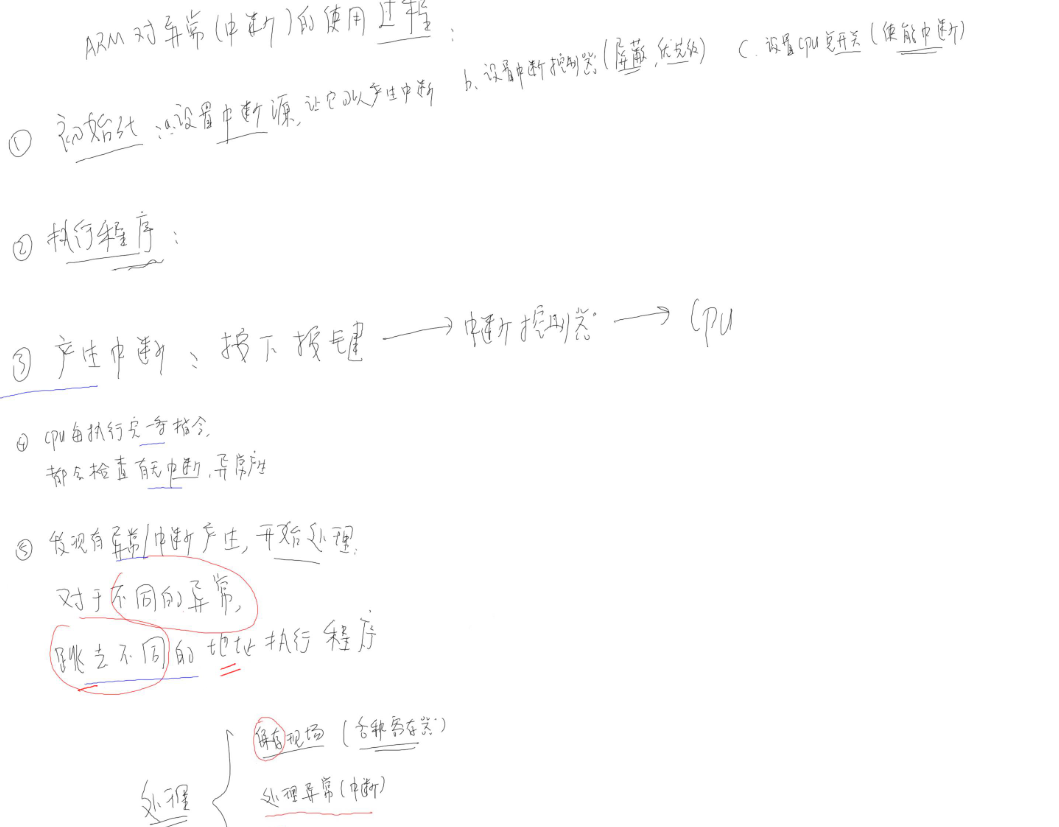 ARM对异常(中断)的使用过程:
① 初始化: a.设置中断源,让它可以产生中断 b、设置中断控制器(屏蔽,优先级) c.设置CPU总开关(使能中断)
② 执行程序:
③ 产生中断: 按下按键 → 中断控制器 → CPU
④ CPU每执行完一条指令,
都会检查有无中断,异常产生
⑤ 发现有异常/中断产生,开始处理.
对于不同的异常,
跳去不同的地址执行程序
保存现场(各种寄存器)
处理 { 处理异常(中断)